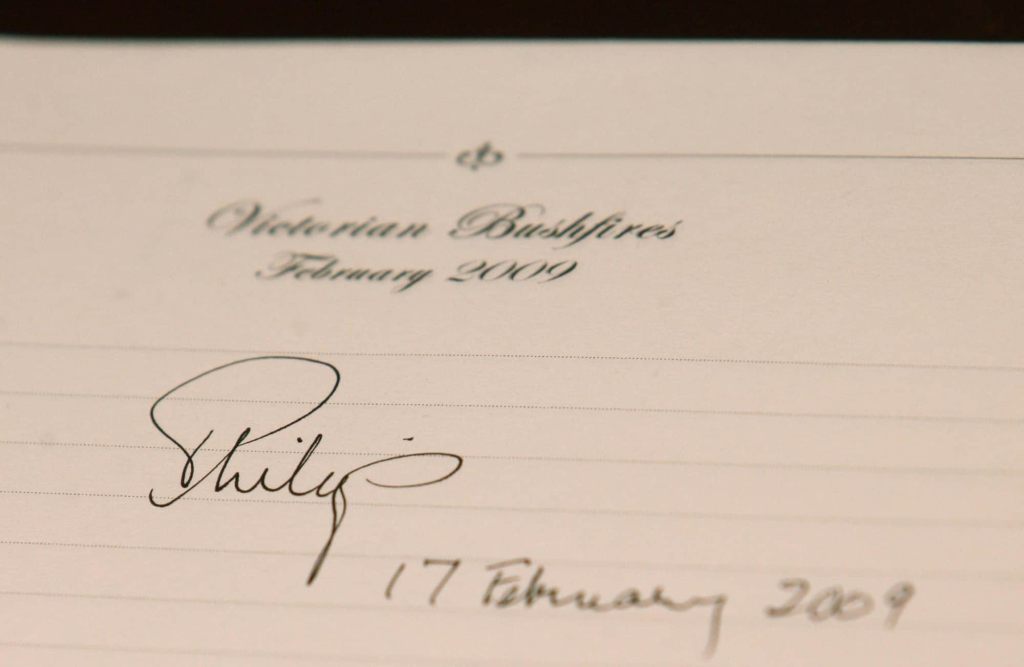 Victorian Bushfires
February 2009
Philip
17 February 2009